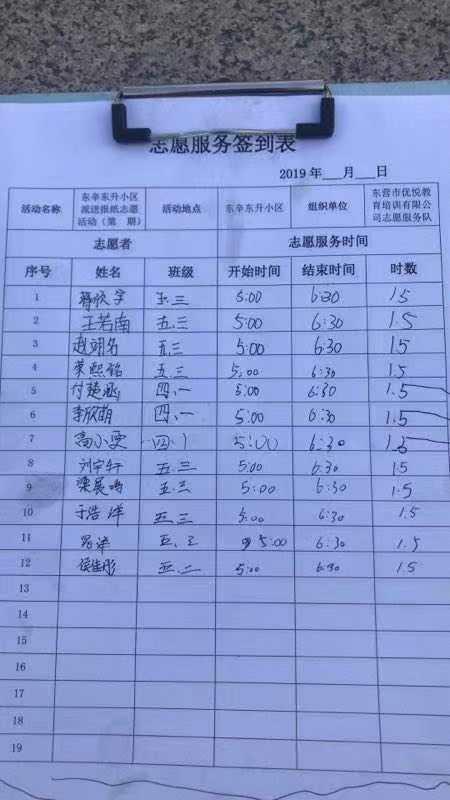 志愿服务签到表
2019 年___月___日
活动名称 东辛东升小区派送报纸志愿活动（第 期） 活动地点 东辛东升小区 组织单位 东营市优悦教育培训有限公司志愿服务队
志愿者 志愿服务时间
序号 姓名 班级 开始时间 结束时间 时数
1 蒋欣宇 五.三 5:00 6:30 1.5
2 王若南 五.三 5:00 6:30 1.5
3 赵翊名 五.三 5:00 6:30 1.5
4 荣熙铭 五.三 5:00 6:30 1.5
5 付楚涵 四.一 5:00 6:30 1.5
6 李欣萌 四.一 5:00 6:30 1.5
7 高小雯 四.1 5:00 6:30 1.5
8 刘宇轩 五.三 5:00 6:30 1.5
9 梁展鸣 五.三 5:00 6:30 1.5
10 于浩洋 五.三 5:00 6:30 1.5
11 5:00 6:30 1.5
12 侯佳彤 五.二 5:00 6:30 1.5
13
14
15
16
17
18
19